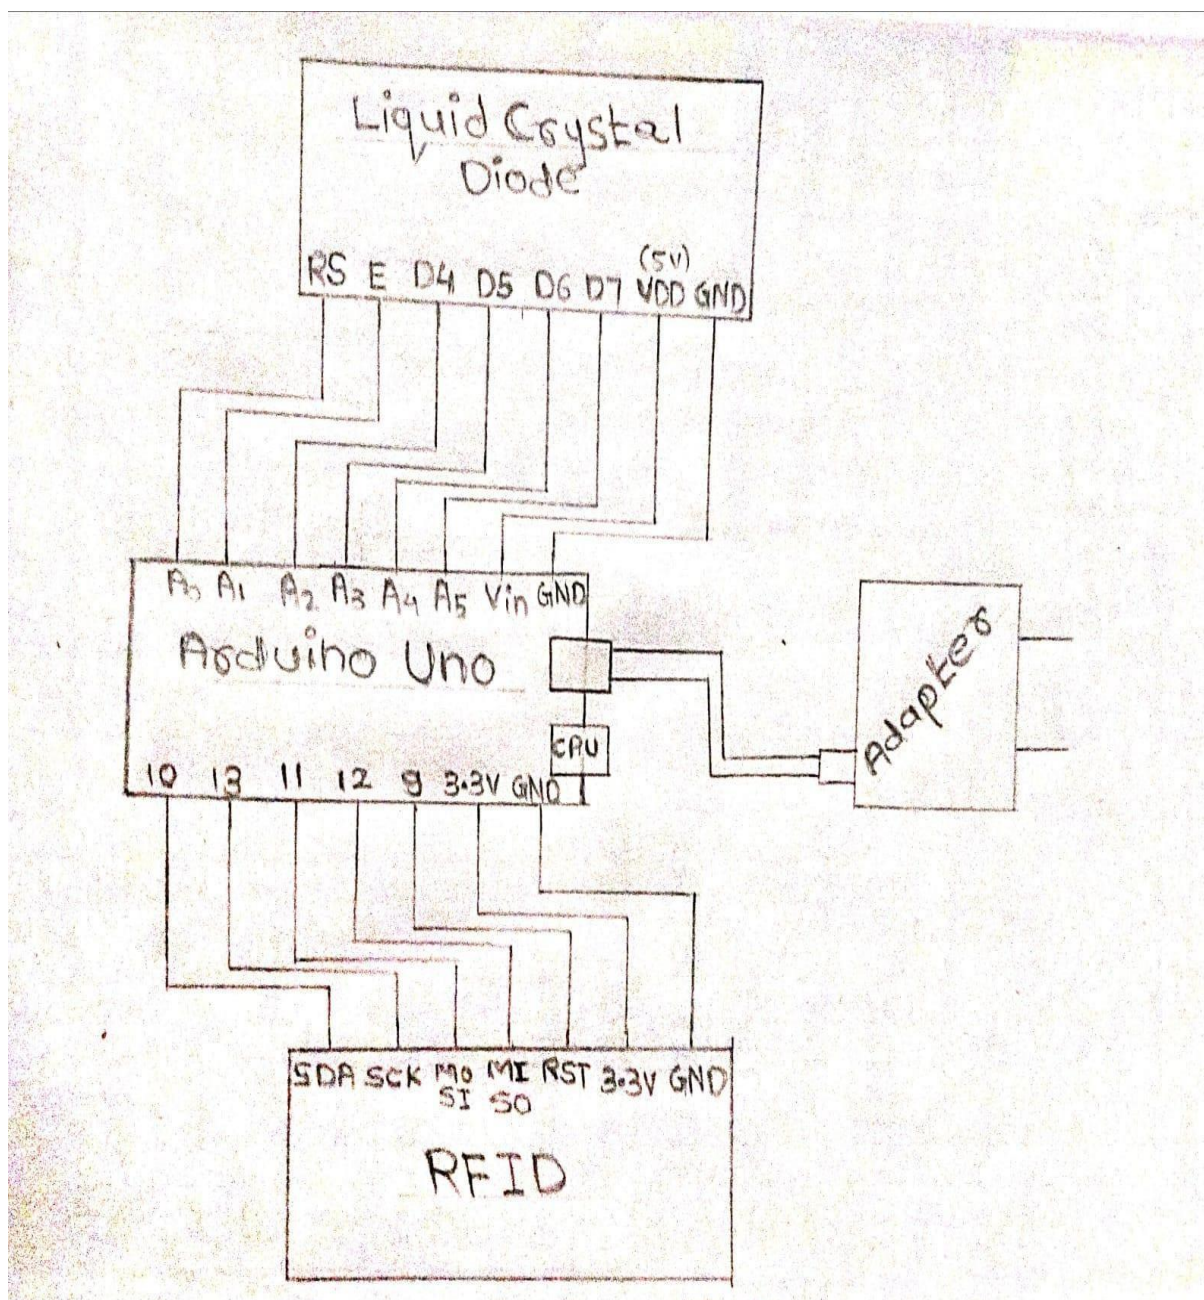 Liquid Crystal
Diode
(5V)
RS E D4 D5 D6 D7 VDD GND
A0 A1 A2 A3 A4 A5 Vin GND
Arduino Uno
CPU
10 13 11 12 9 3.3V GND
Adapter
SDA SCK MO MI RST 3.3V GND
SI SO
RFID